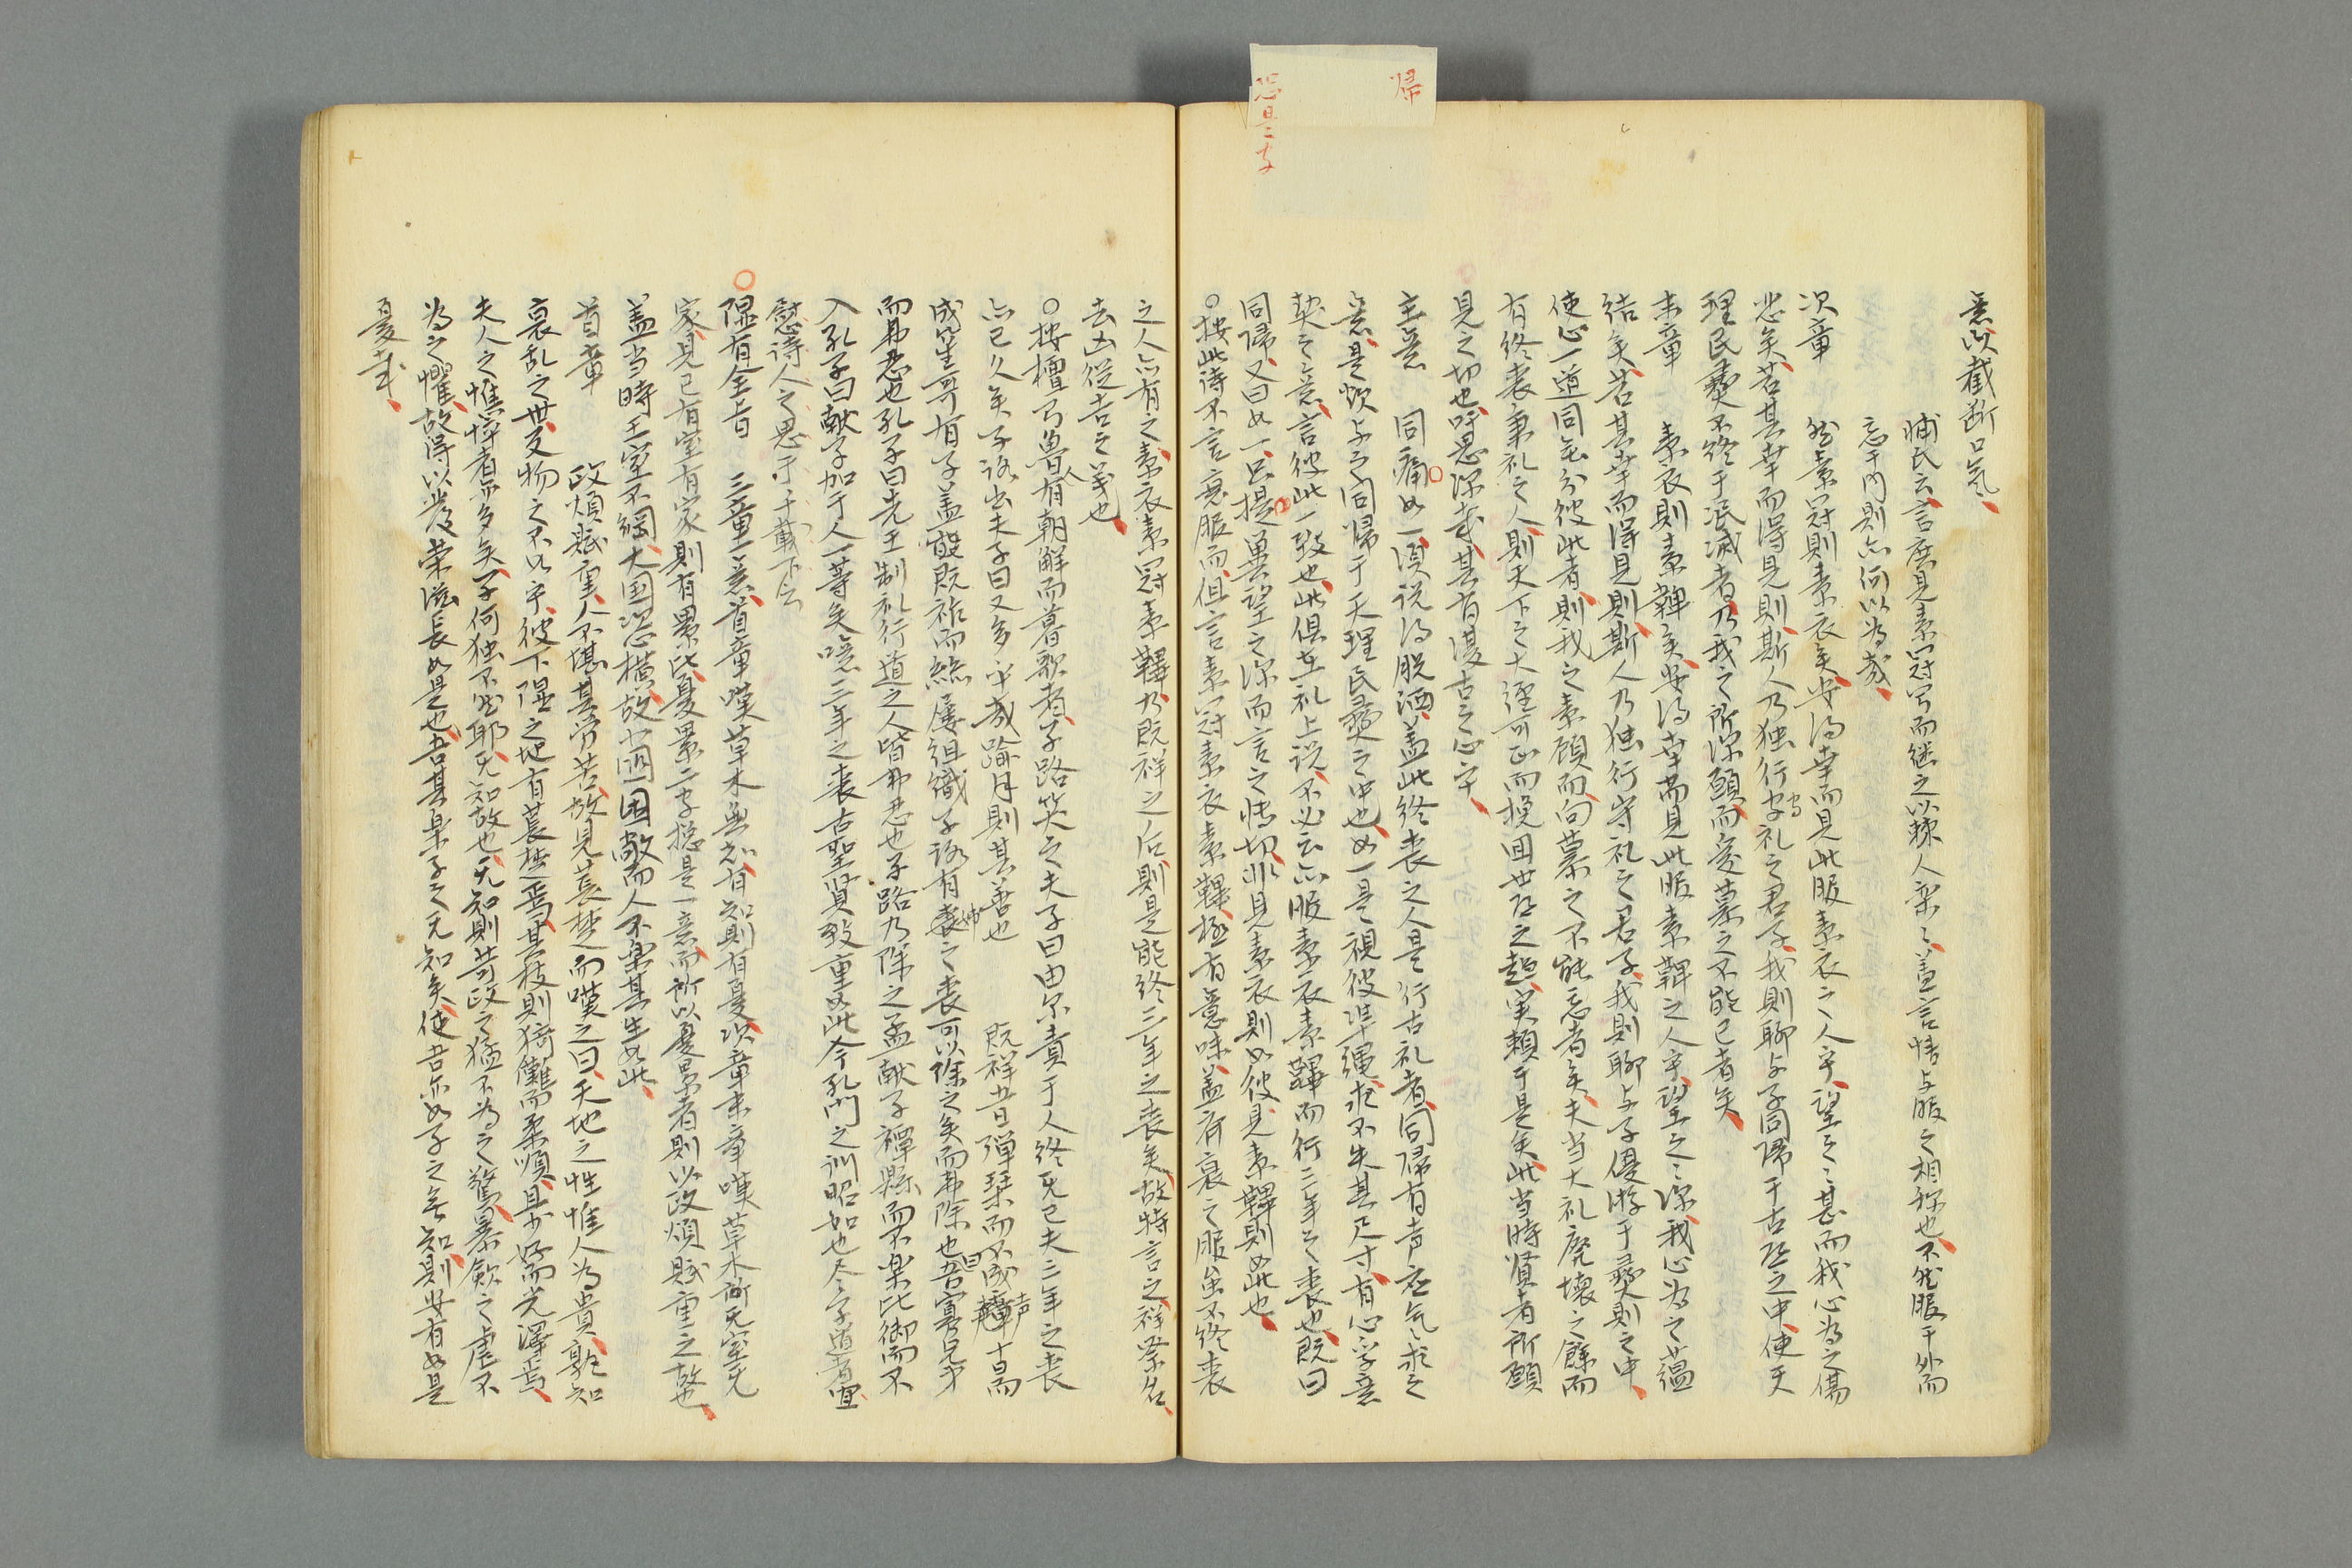 帰
恐是二字
意以截断口氣
輔氏云言庶見素冠兮而继之以棘人欒〻盖言情与服之相称也不然服于外而
忘于内則亦何以為哉
次章　然素冠則素衣矣安得幸而見此服素衣之人乎望之〻甚而我心為之傷
悲矣若其幸而得見則斯人乃独行守礼之君子我則聊与子同帰于古道之中使天
理民彝不終于泯滅者乃我之所深願而愛慕之不能已者矣
末章　素衣則素韠矣安得幸而見此服素韠之人乎望之〻深我心為之蘊
结矣若其幸而得見則斯人乃独行守礼之君子我則聊与子優游于彝則之中
使心一道同無分彼此者則我之素願而向慕之不能忘者矣夫当大礼廃壊之餘而
有終喪秉礼之人則天下之大經可正而挽回世道之趨実頼于是矣此当時賢者所願
見之切也吁思深哉其有復古之心乎
主意　同痛如一須说得脱洒盖此終喪之人是行古礼者同帰有声應气求之
意是欲与之同帰于天理民彝之中也如一是視彼準繩求不失其尺寸有心孚意
契之意言彼此一致也此俱在礼上说不必云亦服素衣素韠而行三年之喪也既曰
同帰又曰如一只是冀望之深而言之情切非見素衣則如彼見素韠則如此也
○按此诗不言衰服而但言素冠素衣素韠極有意味盖有衰之服虽不終喪
之人亦有之素衣素冠素韠乃既祥之后則是能終三年之喪矣故特言之祥祭名
去凶從吉之義也
○按檀弓魯人有朝觧而暮歌者子路笑之夫子曰由尔責于人終无已夫三年之喪
亦已久矣子路出夫子曰又多乎哉踰月則其善也　既祥昔弾琴而不成声十日而
成笙哥有子盖既祥而絲屨组纓子路有姊之喪可以除之矣而弗除也曰吾寡兄弟
而弗忍也孔子曰先王制礼行道之人皆弗忍也子路乃除之孟献子禫縣而不楽比御而不
入孔子曰献子加于人一等矣噫三年之喪古聖賢致重如此今孔門之训昭如也尽子道者宜
慰诗人之思于千載下
隰有全旨　三章一意首章嘆草木無知有知則有憂次章末章嘆草木无室无
家見已有室有家則有累此憂累二字揔是一意而所以憂累者則以政煩賦重之故也
盖当時王室不綱大国恣横故小国困敝而人不楽其生如此
首章　政煩賦重人不堪其労苦故見萇楚而嘆之曰天地之性惟人為貴孰知
衰乱之世反物之不如乎彼下隰之地有萇楚焉其枝則猗儺而柔順且少好而光澤焉
夫人之憔悴者亦多矣子何独不然耶无知故也无知則苛政之猛不為之驚暴斂之虐不
為之懼故得以發栄滋長如是也吾其楽子之无知矣使吾亦如子之無知則安有如是
憂哉